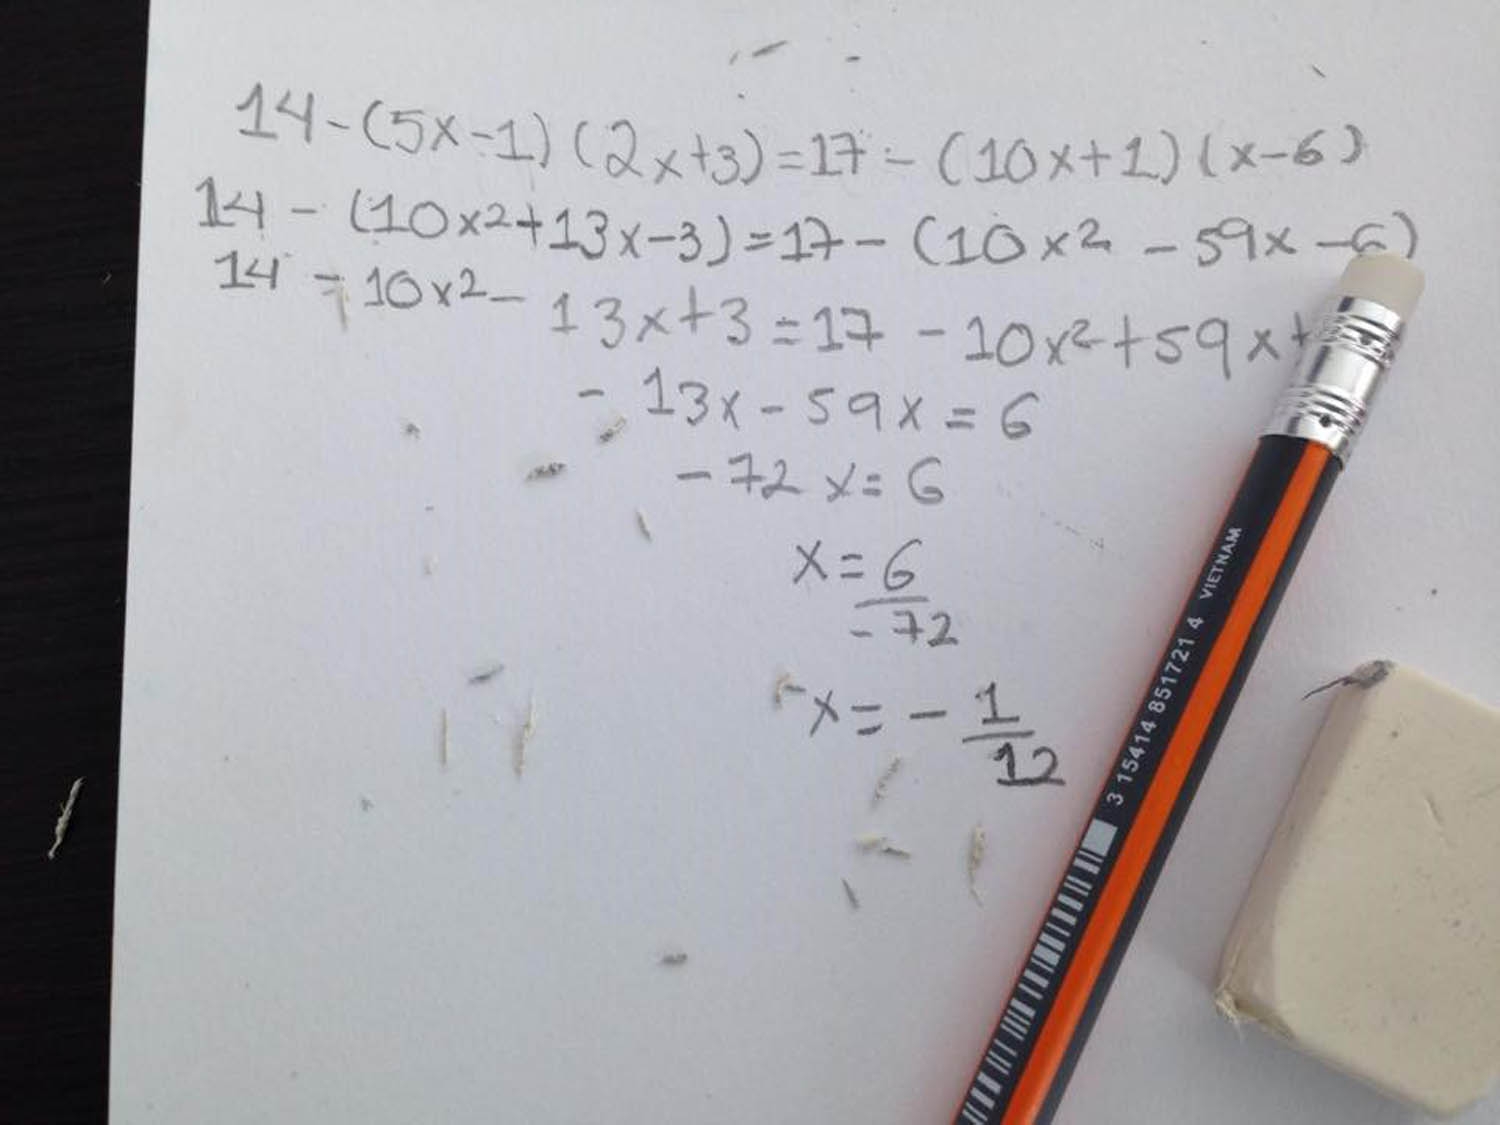 14-(5x-1)(2x+3)=17-(10x+1)(x-6)
14-(10x2+13x-3)=17-(10x2-59x-6)
14-10x2-13x+3=17-10x2+59x+
-13x-59x=6
-72x=6
x=6
-72
x=-1
12
3 15414 851721 4 VIETNAM